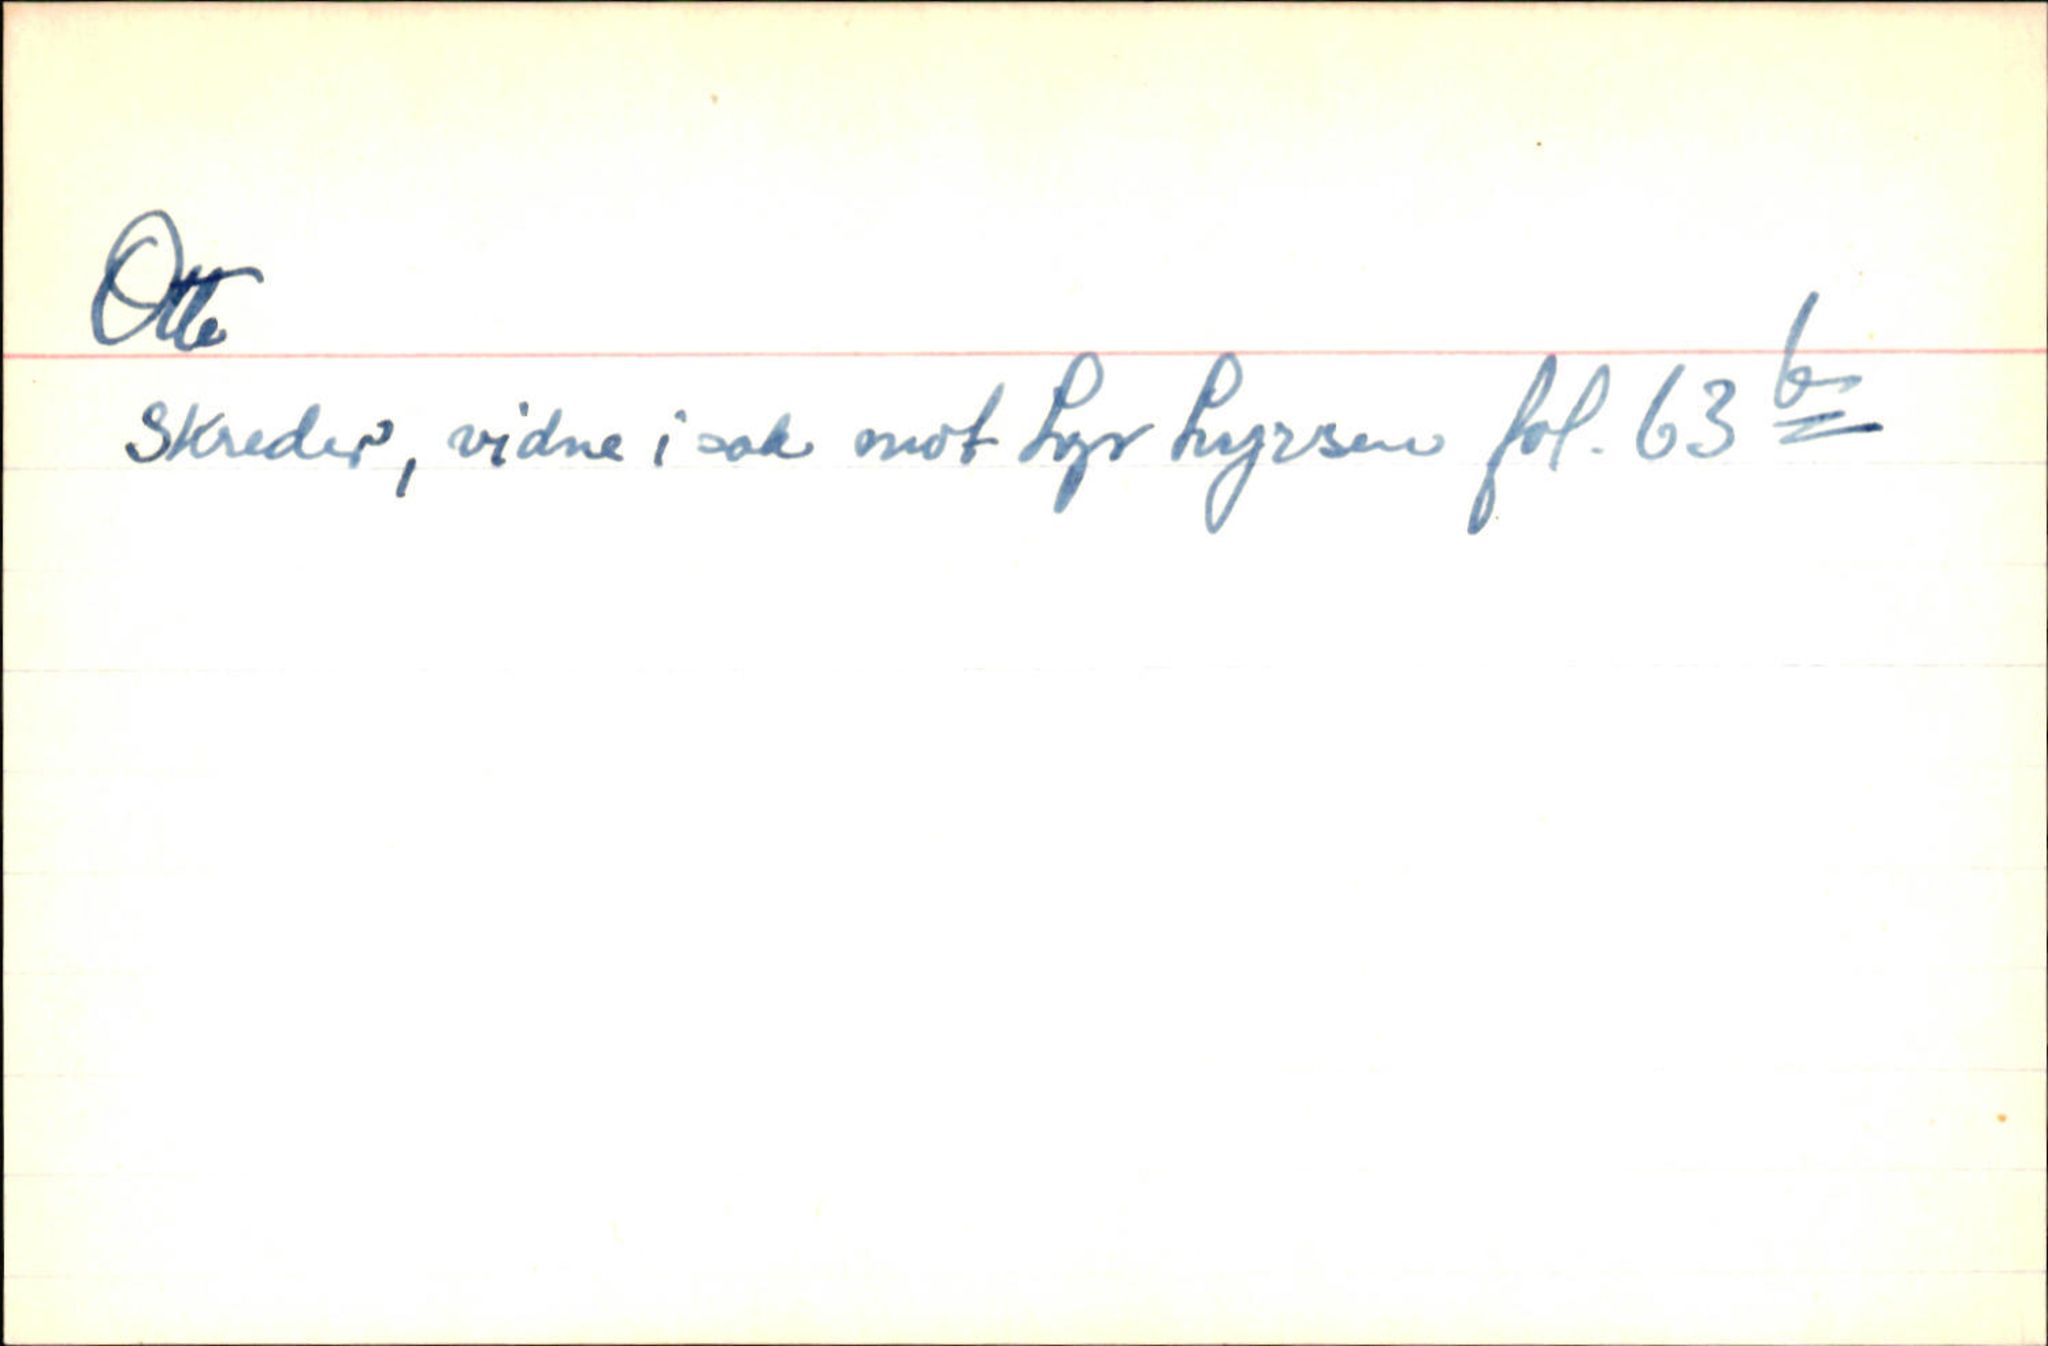 Otte
Skreder, vidne i sak mot Lyr Lyrsen fol. 63 b